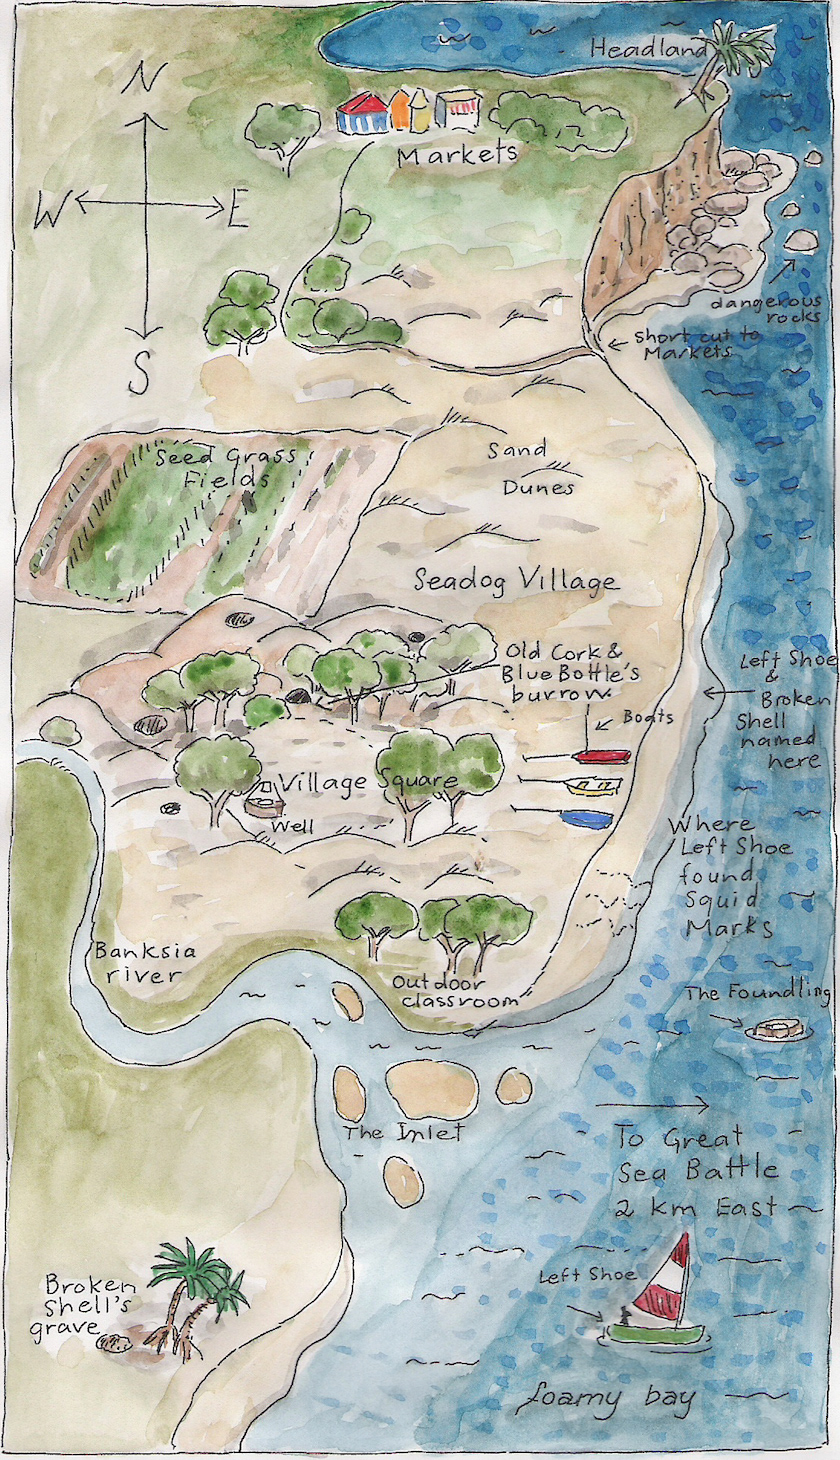 Headland
N
Markets
W
E
dangerous
rocks
short cut to
Markets
S
Seed Grass
Fields
Sand
Dunes
Seadog Village
Old Cork &
Blue Bottle's
burrow
Left Shoe
&
Broken
Shell
named
here
Boats
Village Square
Well
Where
Left Shoe
found
Squid
Marks
Banksia
river
Outdoor
classroom
The Foundling
The Inlet
To Great
Sea Battle
2 km East
Left Shoe
Broken
Shell's
grave
foamy bay